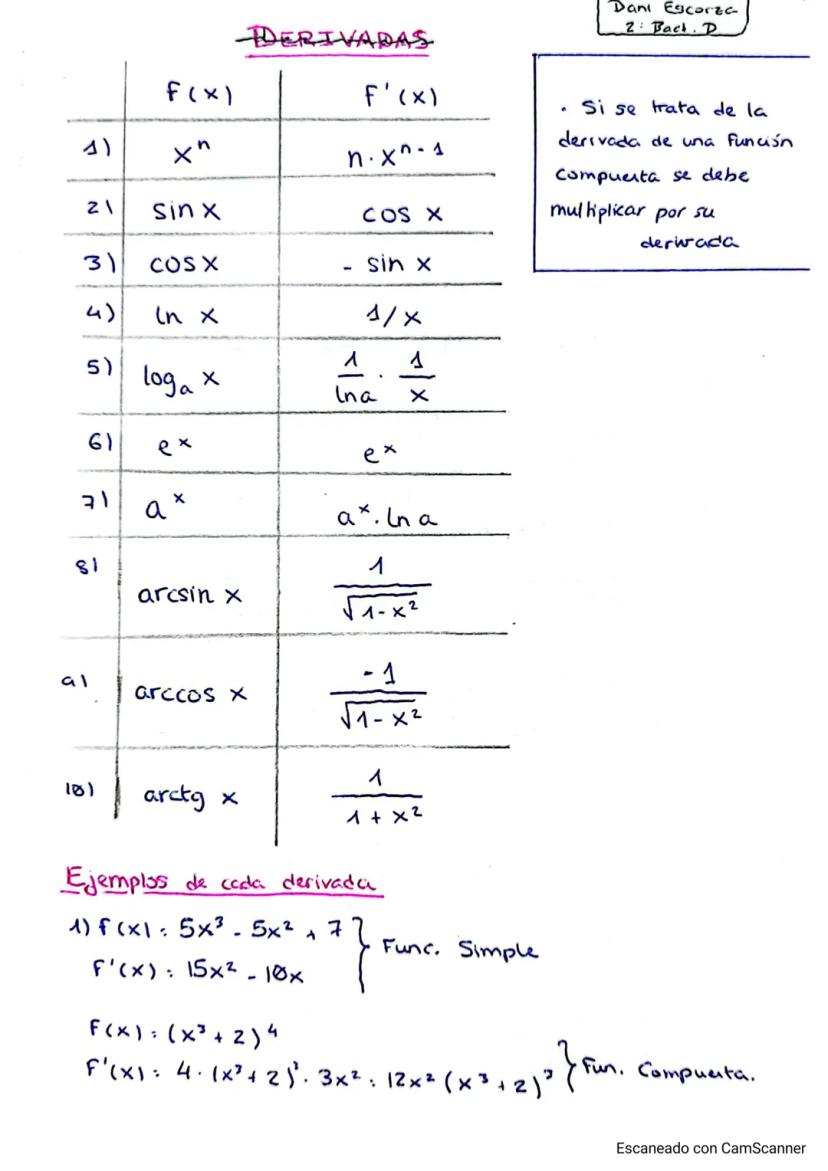 Dani Escorza
2: Bach. D
DERIVADAS
f(x) F'(x)
1) xⁿ n·xⁿ⁻¹
2) sin x cos x
3) cos x - sin x
4) ln x 1/x
5) logₐ x 1/lna · 1/x
6) eˣ eˣ
7) aˣ aˣ. ln a
8) arcsin x 1/√1-x²
9) arccos x -1/√1-x²
10) arctg x 1/1+x²
· Si se trata de la
derivada de una función
compuesta se debe
multiplicar por su
derivada
Ejemplos de cada derivada
1) f(x): 5x³ - 5x² + 7
F'(x): 15x² - 10x
Func. Simple
F(x): (x³ + 2)⁴
F'(x): 4·(x³+2)³· 3x² : 12x² (x³ + 2)³
Fun. Compuesta.
Escaneado con CamScanner